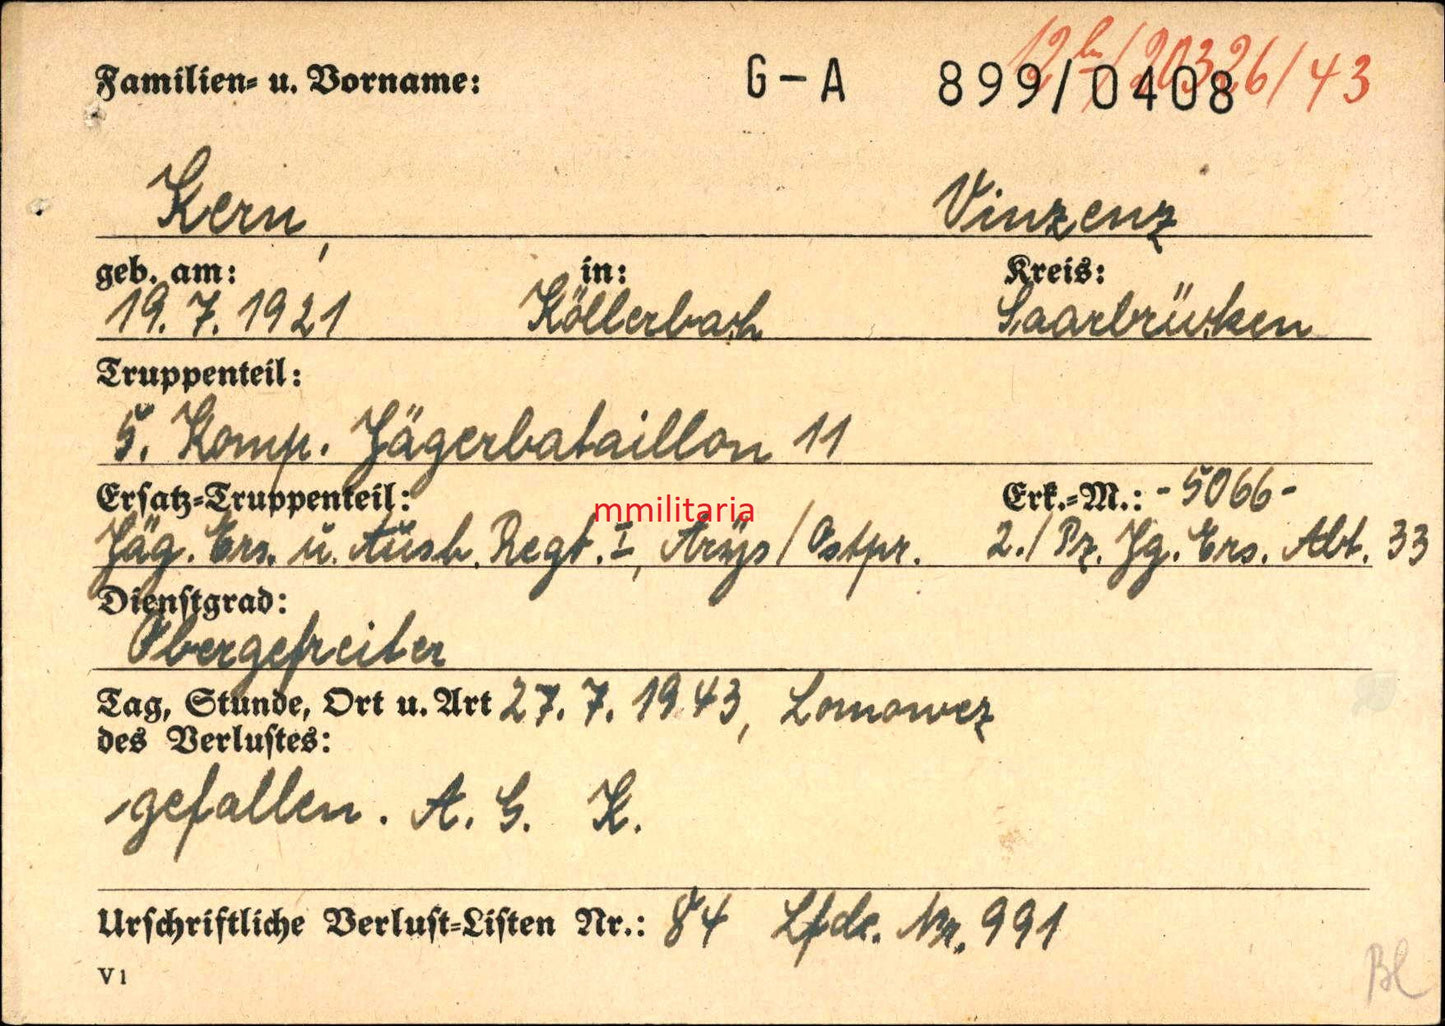 12 b / 20326 / 43
Familien- u. Vorname: G-A 899/0408
Kern, Vinzenz
geb. am: in: Kreis:
19. 7. 1921 Köllerbach Saarbrücken
Truppenteil:
5. Komp. Jägerbataillon 11
Ersatz-Truppenteil: mmilitaria Erk.-M.: -5066-
Jäg. Ers. u. Ausb. Regt. I, Arys / Ostpr. 2./Pz. Jg. Ers. Abt. 33
Dienstgrad:
Obergefreiter
Tag, Stunde, Ort u. Art 27. 7. 1943, Lomowez
des Verlustes:
gefallen. A. G. K.
Urschriftliche Verlust-Listen Nr.: 84 Lfde. Nr. 991
V 1